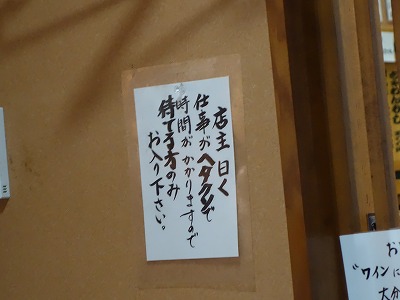 店主曰く
仕事がヘタクソで
時間がかかりますので
待てる方のみ
お入り下さい。
お
"ワインに
大分